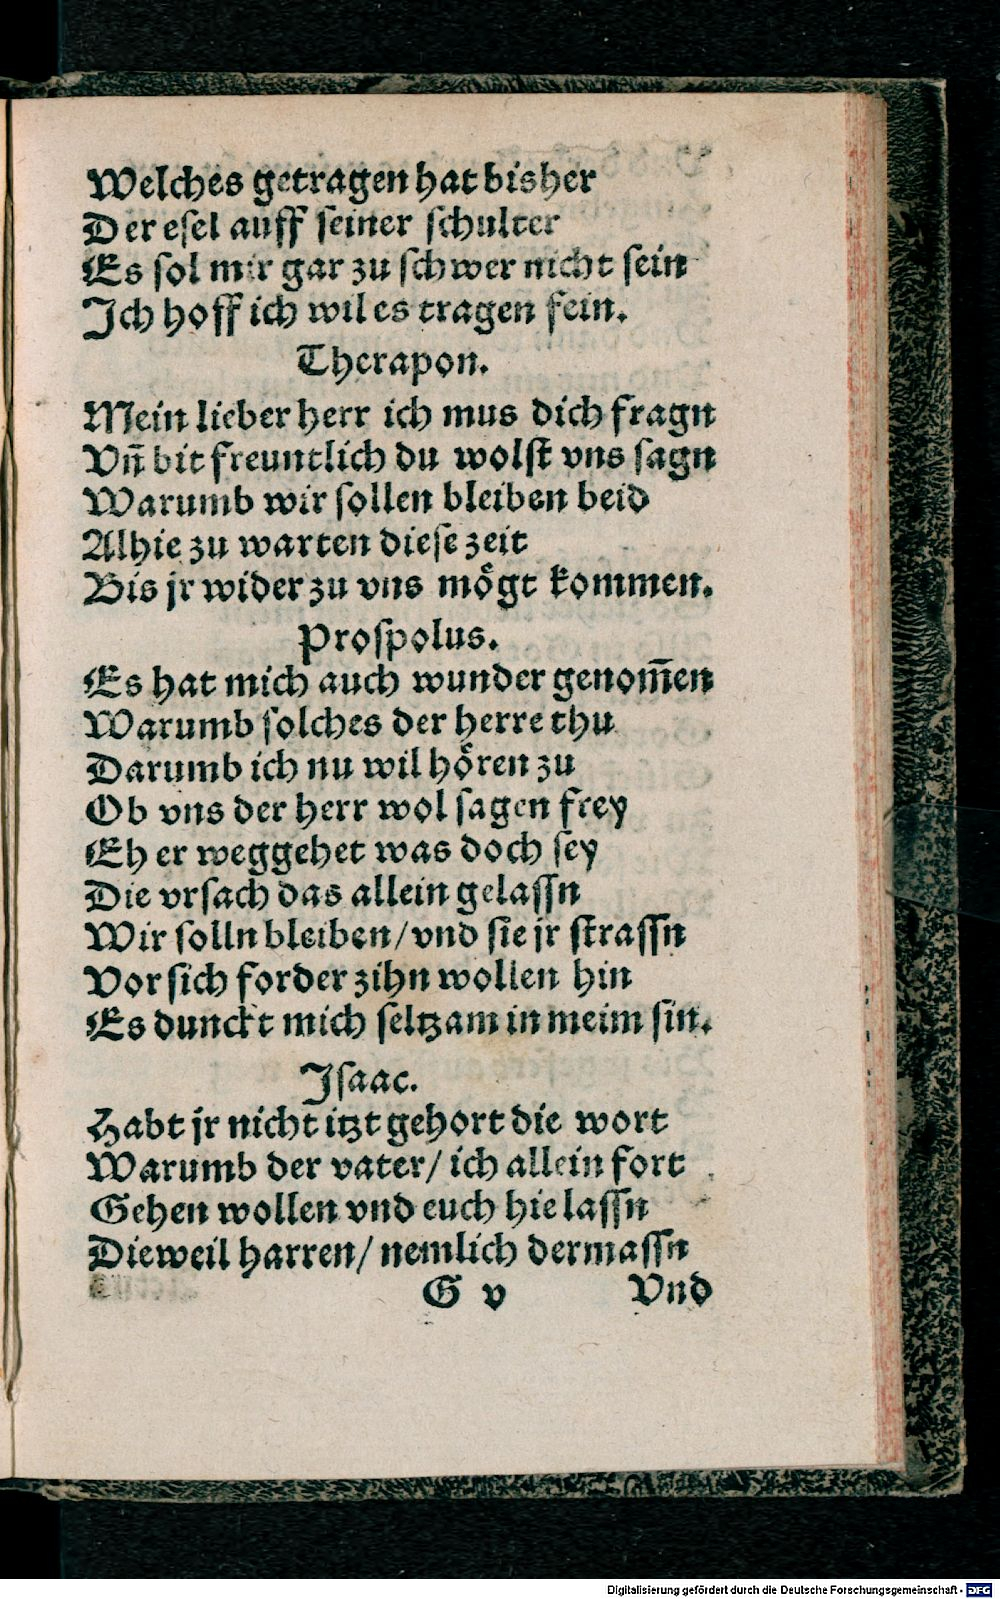 Welches getragen hat bisher
Der esel auff seiner schulter
Es sol mir gar zu schwer nicht sein
Jch hoff ich wil es tragen fein.
Therapon.
Mein lieber herr ich mus dich fragn
Vn̄ bit freuntlich du wolst vns sagn
Warumb wir sollen bleiben beid
Alhie zu warten diese zeit
Bis jr wider zu vns mögt kommen.
Prospolus.
Es hat mich auch wunder genom̄en
Warumb solches der herre thu
Darumb ich nu wil hören zu
Ob vns der herr wol sagen frey
Eh er weggehet was doch sey
Die vrsach das allein gelassn
Wir solln bleiben/vnd sie jr strassn
Vor sich forder zihn wollen hin
Es dunckt mich seltzam in meim sin.
Jsaac.
Habt jr nicht itzt gehort die wort
Warumb der vater/ ich allein fort
Gehen wollen vnd euch hie lassn
Dieweil harren/ nemlich dermassn
G v Vnd
Digitalisierung gefördert durch die Deutsche Forschungsgemeinschaft - DFG